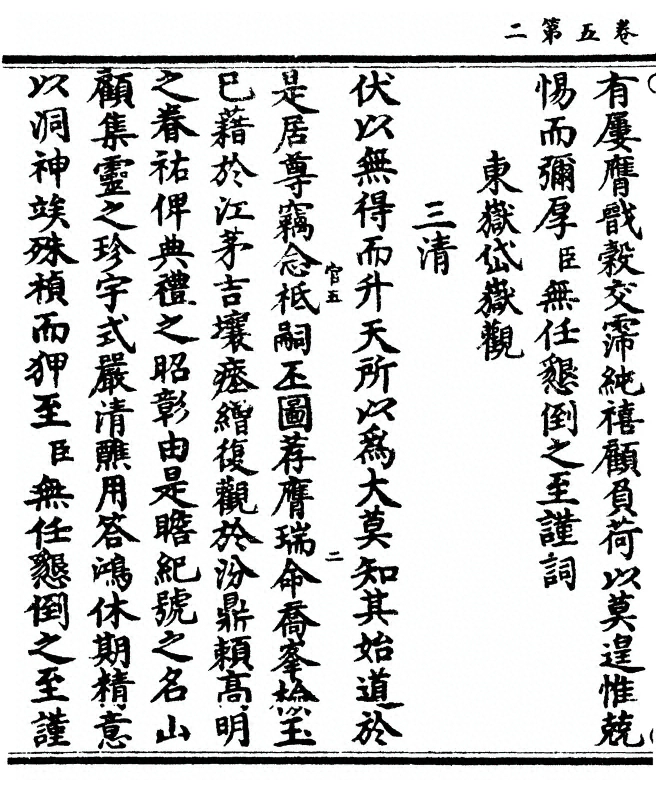 卷五第二
有屢膺戩糓交霈純禧顧負荷以莫遑惟兢
惕而彌厚臣無任懇倒之至謹詞
東嶽岱嶽觀
三清
伏以無得而升天所以爲大莫知其始道於
是居尊竊念祗嗣丕圖荐膺瑞命喬峯檢玉
官五
二
巳藉於江茅吉壤瘞繒復觀於汾鼎頼髙明
之眷祐俾典禮之昭彰由是瞻紀號之名山
顧集靈之珍宇式嚴清醮用答鴻休期精意
以洞神竢殊楨而狎至臣無任懇倒之至謹